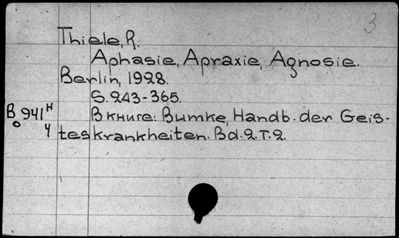 3
Thiele, R.
Aphasie, Apraxie, Agnosie.
Berlin, 1928.
S. 243-365.
В книге: Bumke, Handb. der Geis-
teskrankheiten. Bd. 2. T. 2.
B 941 H
o 4